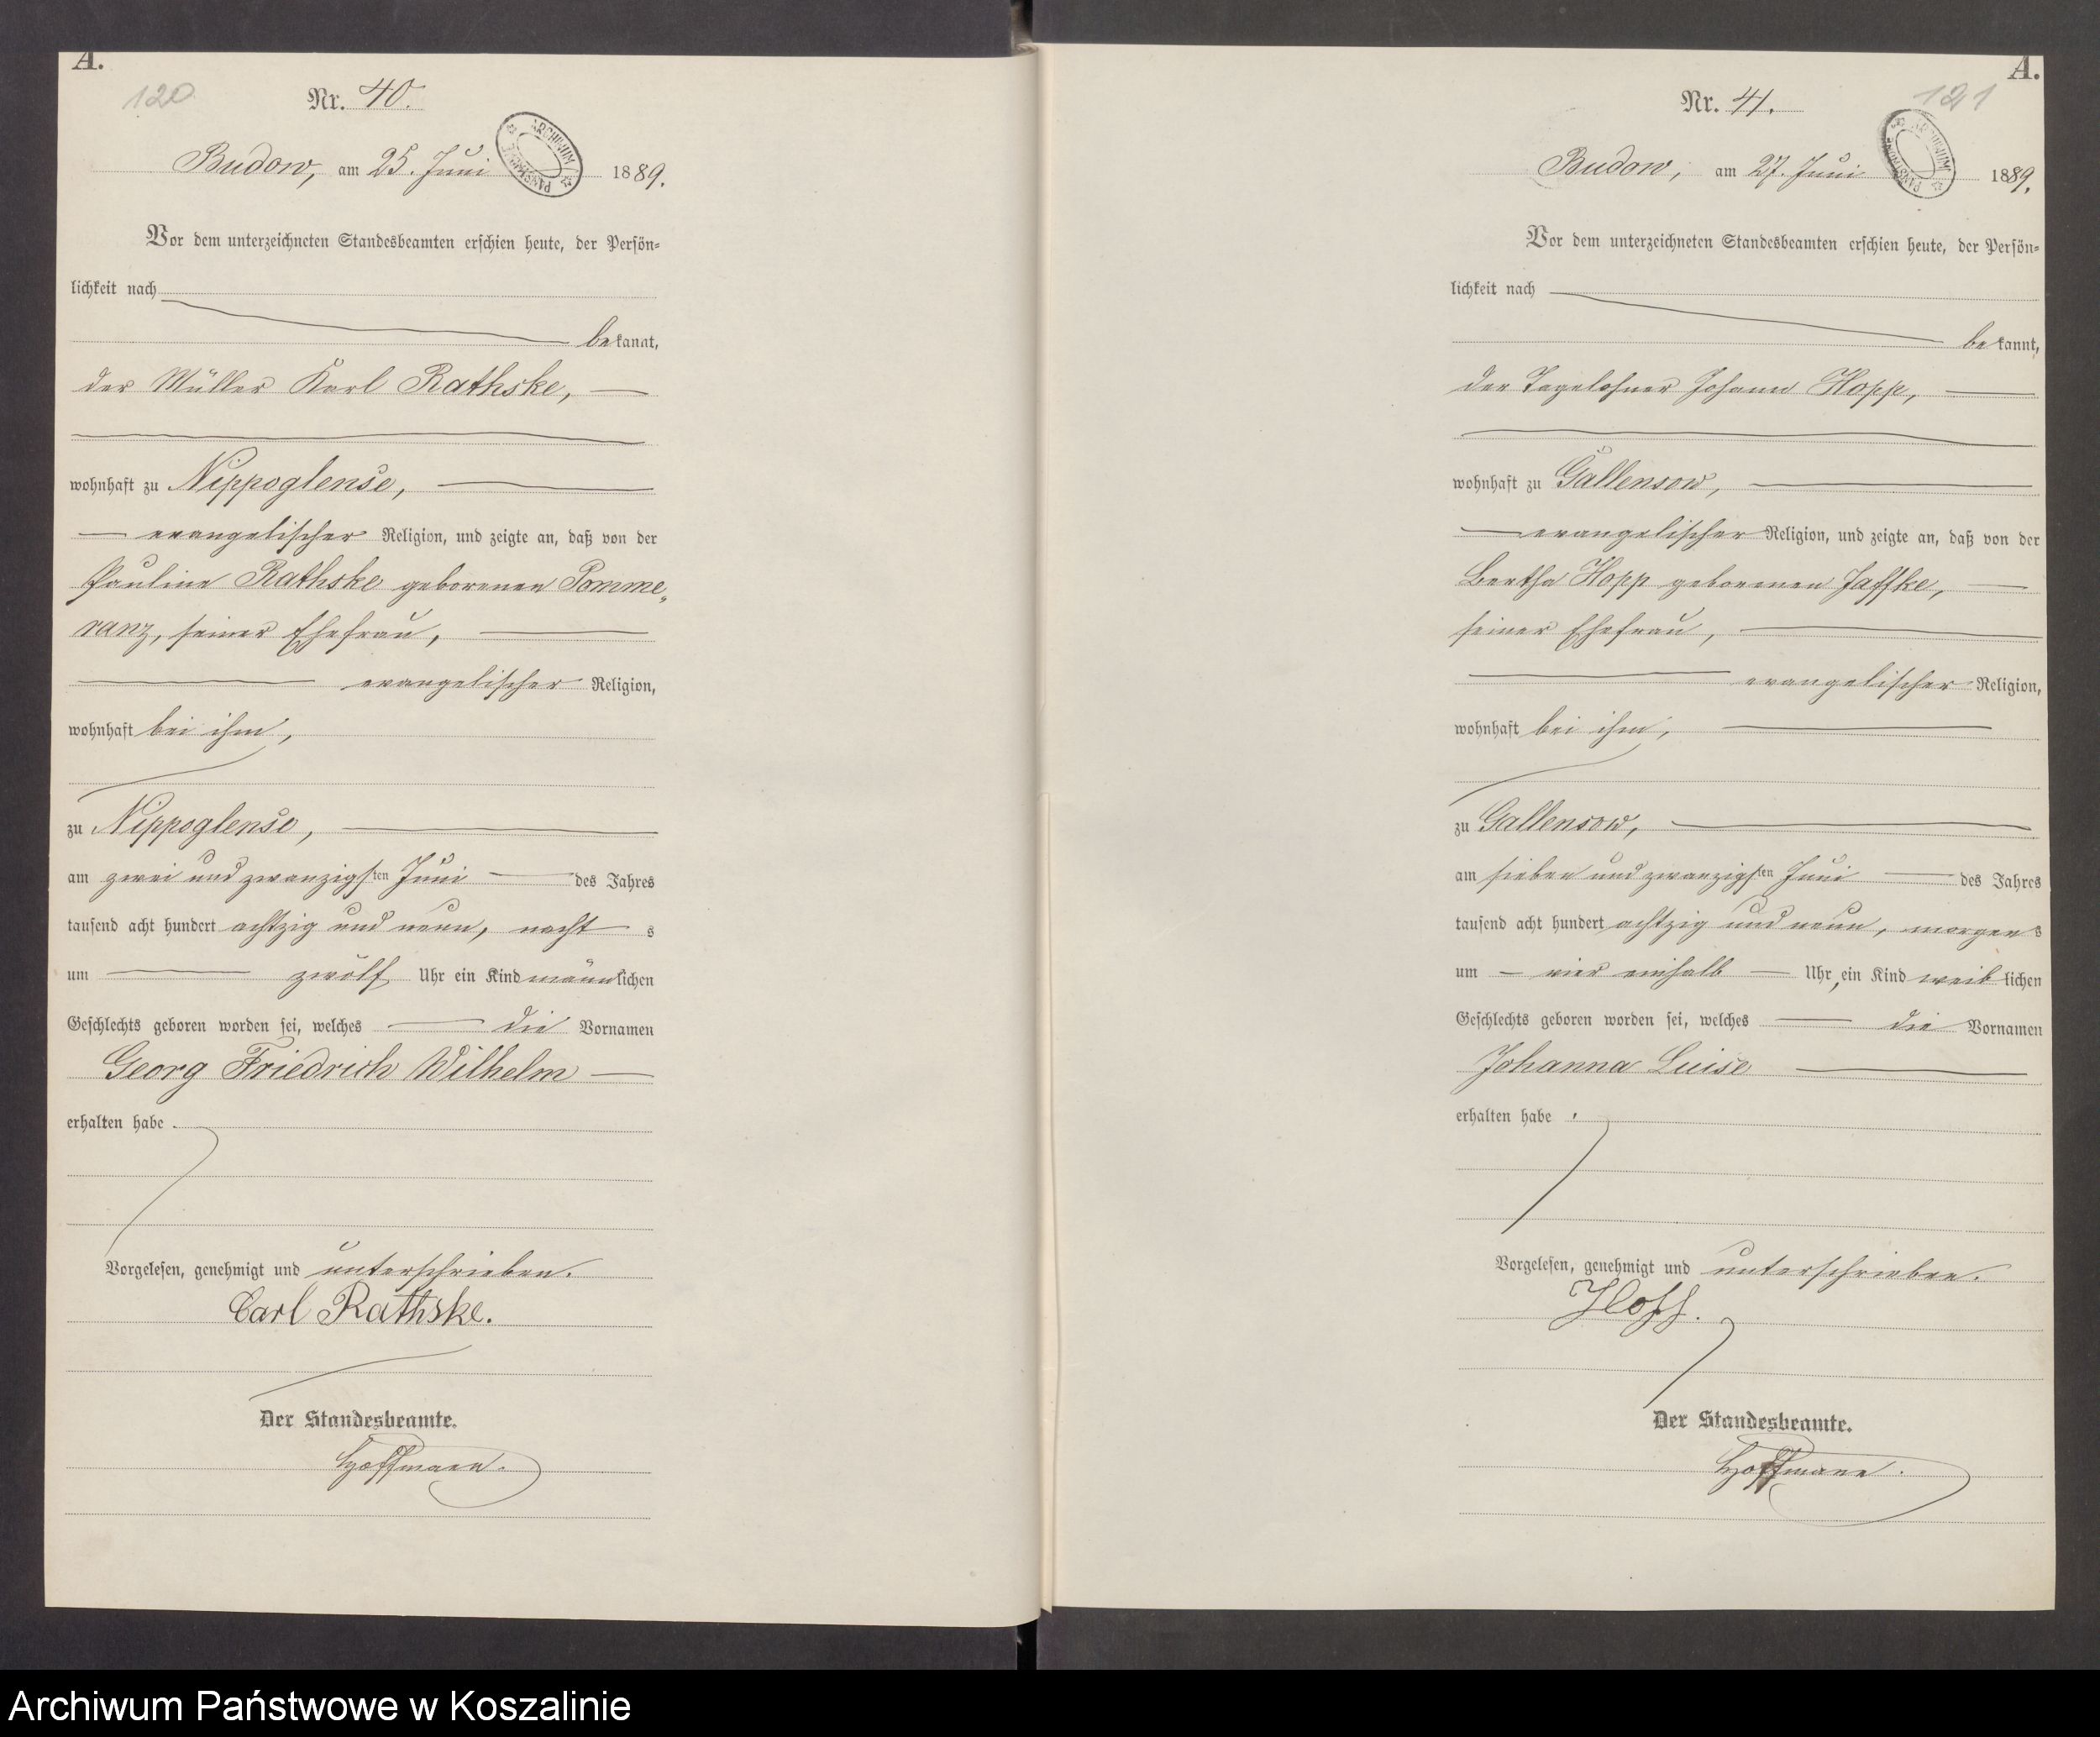 A.
120
Nr. 40.
ARCHIWUM PAŃSTWOWE
Budow, am 25. Juni 1889.
Vor dem unterzeichneten Standesbeamten erschien heute, der Persön-
lichkeit nach
bekannt,
der Müller Karl Rathske,
wohnhaft zu Nippoglense,
evangelischer Religion, und zeigte an, daß von der
Pauline Rathske geborenen Pomme-
ranz, seiner Ehefrau,
evangelischer Religion,
wohnhaft bei ihm,
zu Nippoglense,
am zwei und zwanzigsten Juni des Jahres
tausend acht hundert achtzig und neun, nachts
um zwölf Uhr ein Kind männlichen
Geschlechts geboren worden sei, welches die Vornamen
Georg Friedrich Wilhelm
erhalten habe.
Vorgelesen, genehmigt und unterschrieben.
Carl Rathske.
Der Standesbeamte.
Hoffmann.
A.
121
Nr. 41.
ARCHIWUM PAŃSTWOWE
Budow, am 27. Juni 1889.
Vor dem unterzeichneten Standesbeamten erschien heute, der Persön-
lichkeit nach
bekannt,
der Tagelohner Johann Hopp,
wohnhaft zu Gallensow,
evangelischer Religion, und zeigte an, daß von der
Bertha Hopp geborenen Jaffke,
seiner Ehefrau,
evangelischer Religion,
wohnhaft bei ihm,
zu Gallensow,
am sieben und zwanzigsten Juni des Jahres
tausend acht hundert achtzig und neun, morgens
um vier einhalb Uhr, ein Kind weiblichen
Geschlechts geboren worden sei, welches die Vornamen
Johanna Luise
erhalten habe.
Vorgelesen, genehmigt und unterschrieben.
Hopp.
Der Standesbeamte.
Hoffmann.
Archiwum Państwowe w Koszalinie